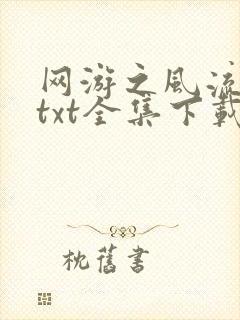 网游之风流
txt全集下载
枕舊書